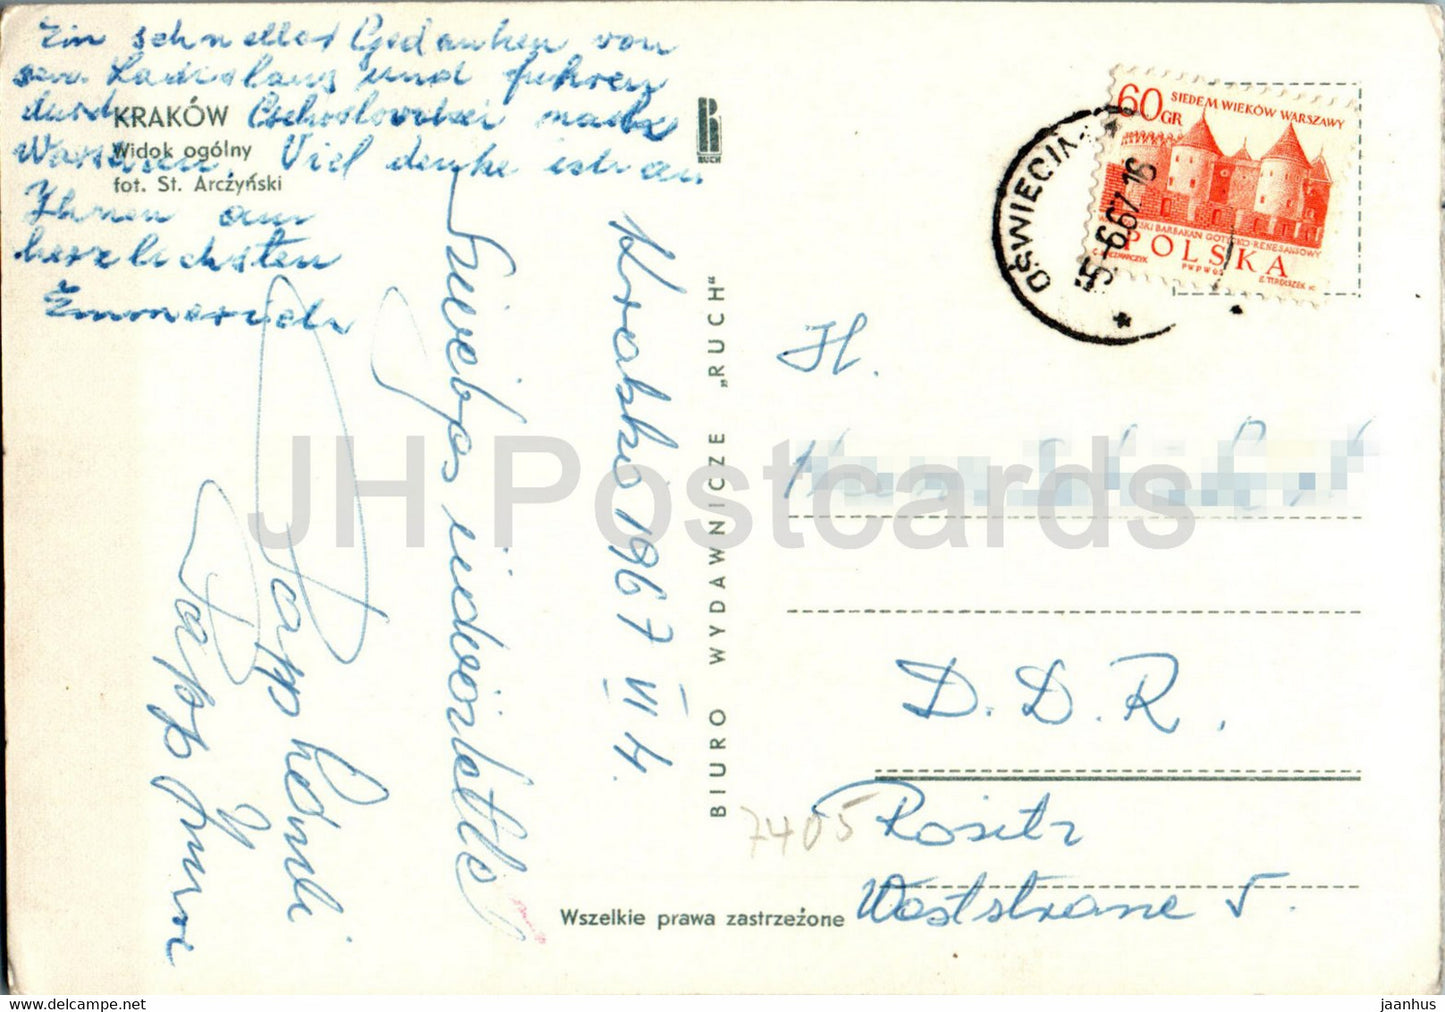 Ein schneller Gedanken von
Ladislaus und fuhren
durch Cschoslovakei nach
Warschau. Viel denke ich an
Ihnen am
herzlichsten
Emmerich
KRAKÓW
Widok ogólny
fot. St. Arczyński
RUCH
Krakko 1967 VI 4.
Szivélyes üdvözlettel
Papp
Papp Imre
BIURO WYDAWNICZE „RUCH"
Wszelkie prawa zastrzeżone
OŚWIĘCIM
-5-6.67.16
60 GR
SIEDEM WIEKÓW WARSZAWY
BARBAKAN GOTYCKO-RENESANSOWY
POLSKA
PWPW 65
H.
D. D. R.
7405 Rositz
Weststrasse 5.
JH Postcards
www.delcampe.net
jaanhus